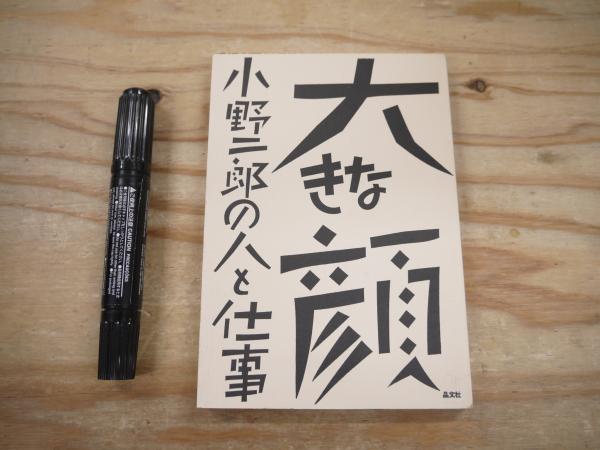 大きな顔
小野二郎の人と仕事
晶文社
CAUTION